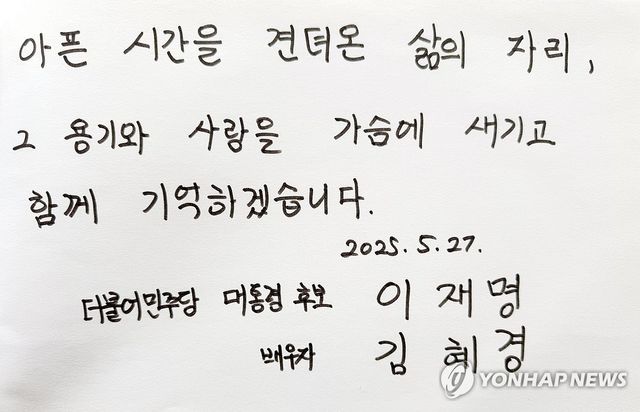 아픈 시간을 견뎌온 삶의 자리,
그 용기와 사랑을 가슴에 새기고
함께 기억하겠습니다.
2025. 5. 27.
더불어민주당 대통령 후보 이재명
배우자 김혜경
YONHAP NEWS